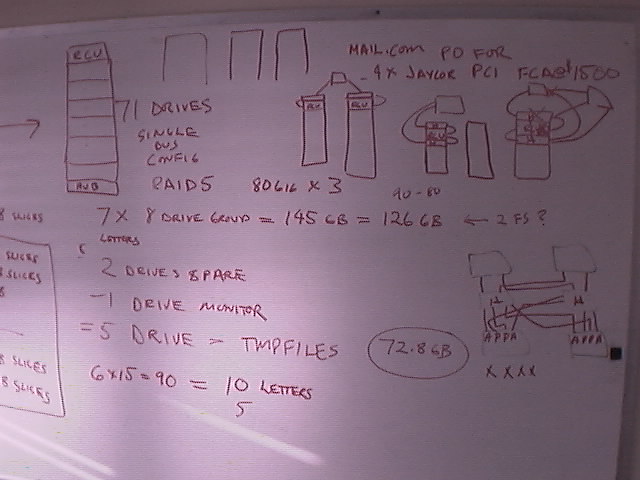 RCU
MAIL.COM PO FOR
4X JAYCOR PCI FCA@$1500
71 DRIVES
SINGLE
BUS
CONFIG
HUB
RAID5 80GIG X 3
RCU RCU
RCU
40-80
8 SLICES
7 X 8 DRIVE GROUP = 145 GB = 126 GB ← 2 FS ?
LETTERS
SLICES
SLICES
8
2 DRIVES SPARE
-1 DRIVE MONITOR
= 5 DRIVE - TMPFILES
72.8 GB
APPA APPA
X X X X
8 SLICES
8 SLICES
6X15=90 = 10 LETTERS
5